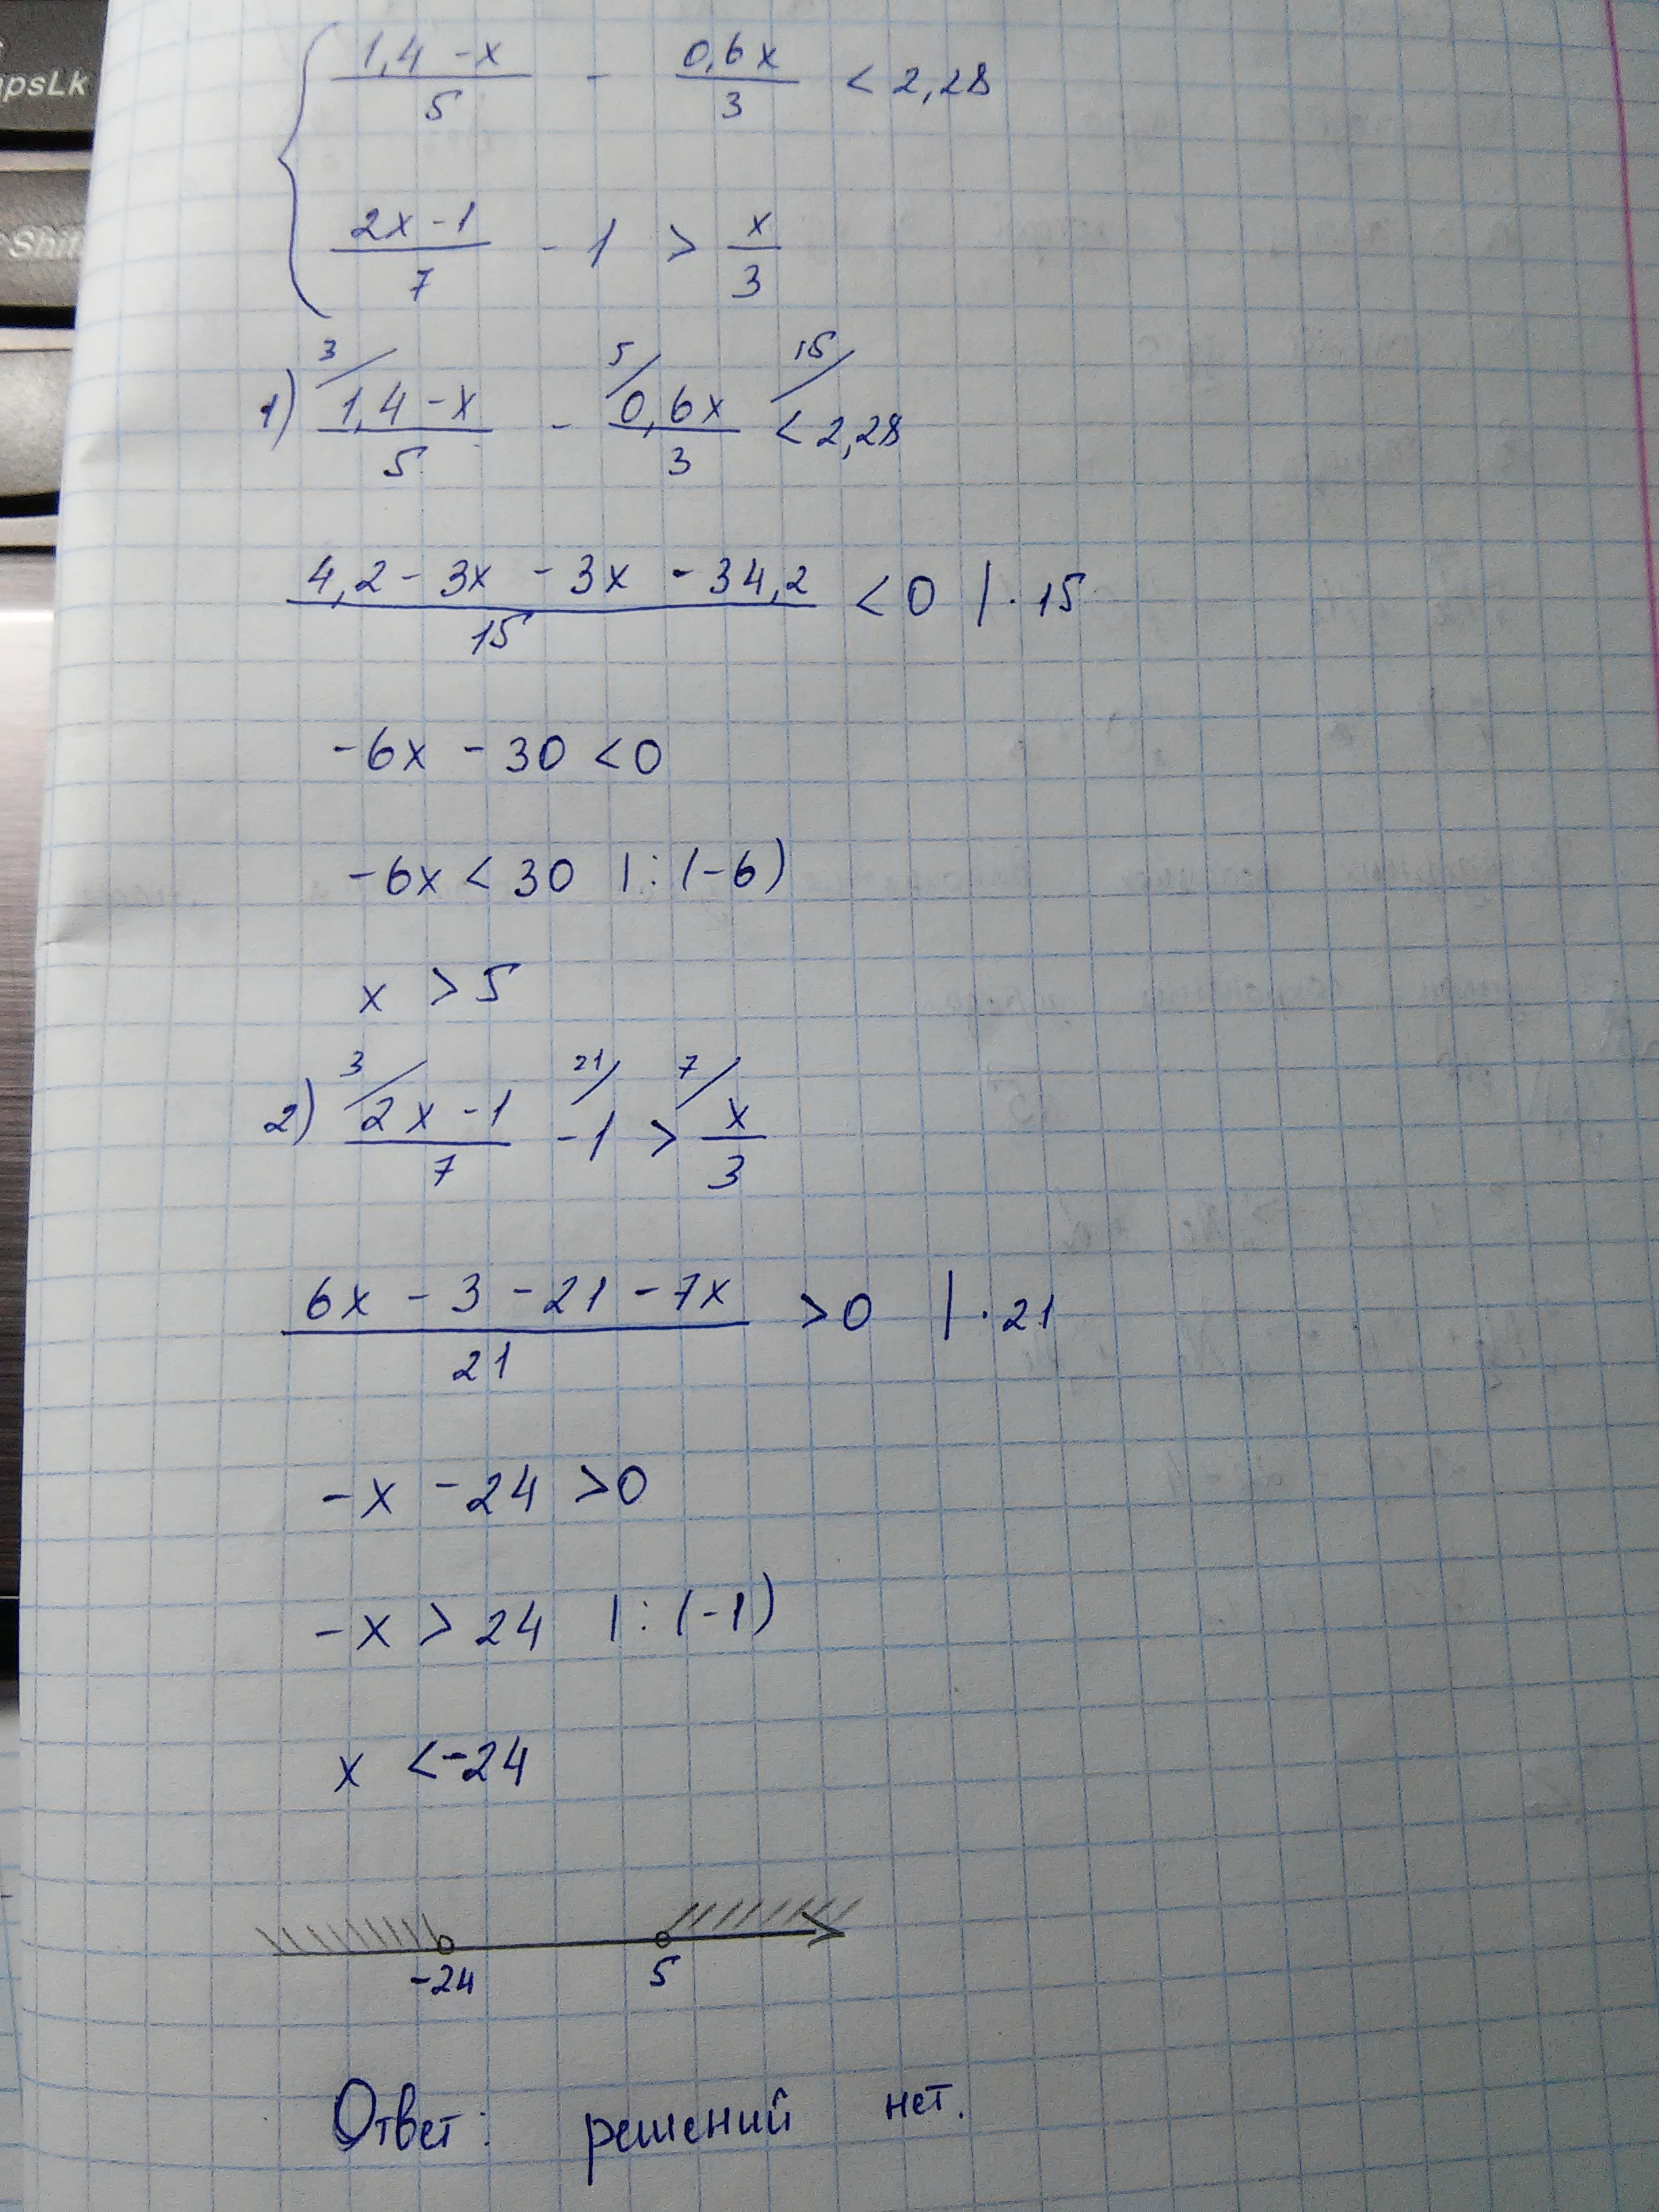 psLk
Shif
(1,4 - x)/5 - 0,6x/3 < 2,28
(2x - 1)/7 - 1 > x/3
3/ 5/ 15/
1) (1,4 - x)/5 - 0,6x/3 < 2,28
(4,2 - 3x - 3x - 34,2)/15 < 0 | · 15
-6x - 30 < 0
-6x < 30 | : (-6)
x > 5
3/ 21/ 7/
2) (2x - 1)/7 - 1 > x/3
(6x - 3 - 21 - 7x)/21 > 0 | · 21
-x - 24 > 0
-x > 24 | : (-1)
x < -24
-24 5
Ответ: решений нет.